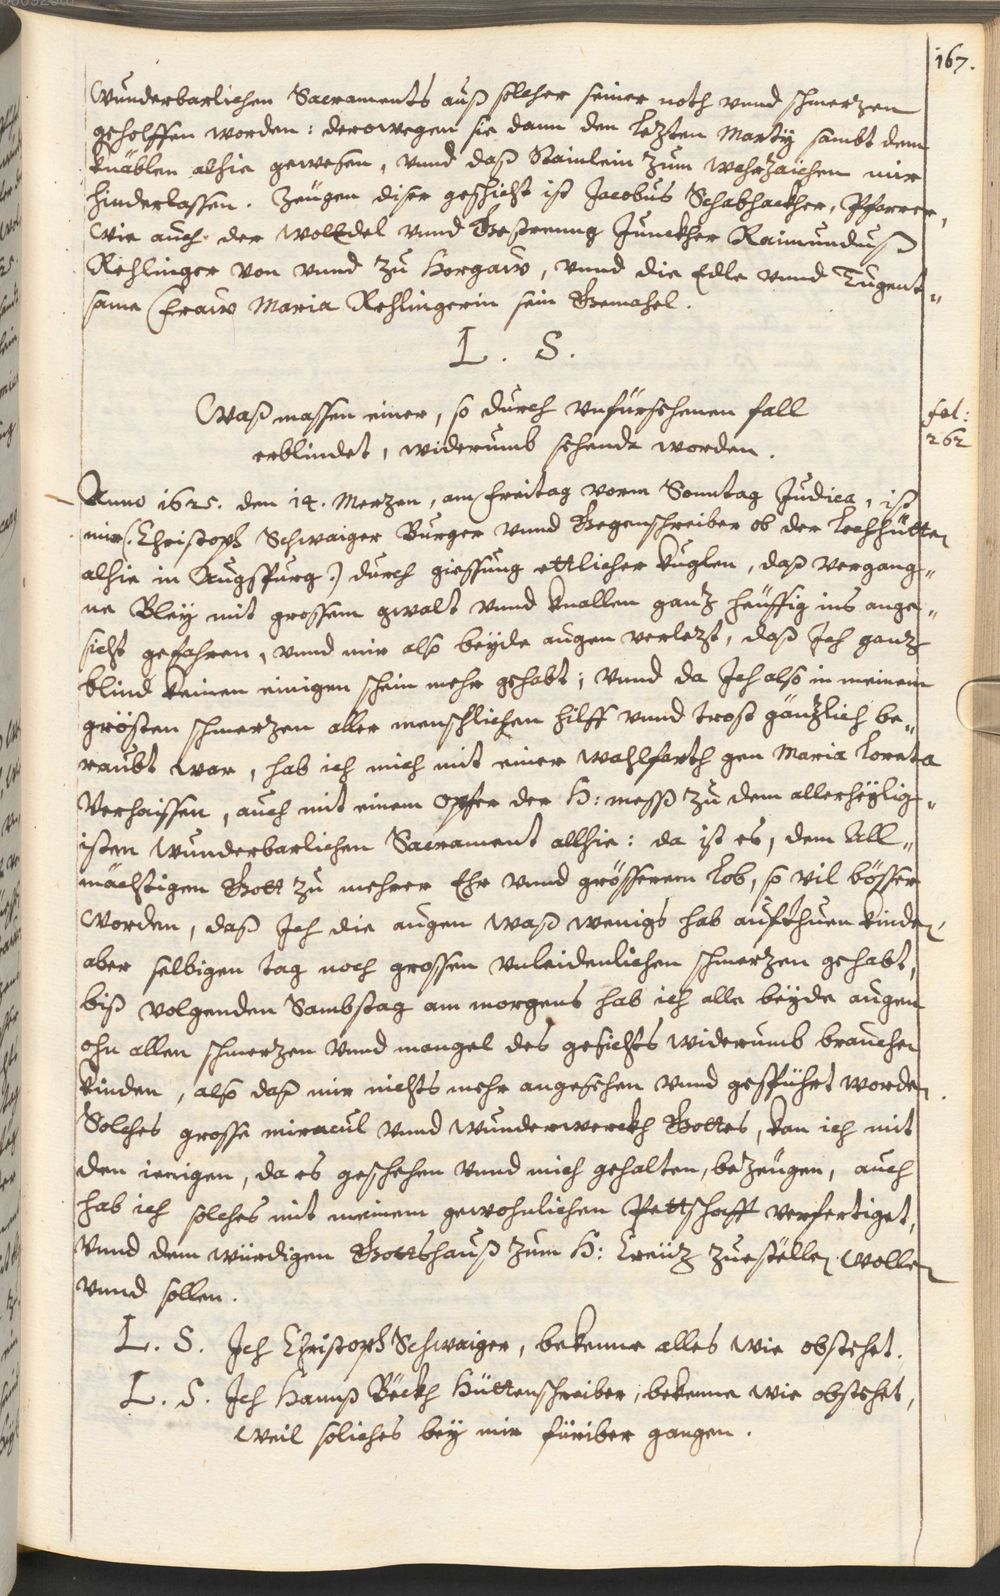 167.
Wunderbarlichen Sacraments auß solcher seiner noth vnnd schmertzen
geholffen worden: derowegen sie dann den letzten Marty sambt dem
knäblen alhie gewesen, vnnd daß Stainlein zum wahrzaichen mir
hinderlassen. Zeugen diser geschicht ist Jacobus Schabhackher, Pfarrer,
Wie auch der WolEdel vnnd Gestreng Junckher Raimunduß
Rehlinger von vnnd zu Horgaw, vnnd die Edle vnnd Tugent„
same Fraw Maria Rehlingerin sein Gemahel.
L. S.
Waß massen einer, so durch vnfürsehenen fall
erblindet, widerumb sehendt worden.
fol:
262
Anno 1625. den 14. Mertzen, am Freitag vorm Sonntag Judica, ist
mir (Christoph Schwaiger Burger vnnd Gegenschreiber ob der Lechhütten
alhie in Augspurg.) durch giessung ettlicher Kuglen, daß vergang„
ne Bley mit grossem gwalt vnnd knallen gantz heuffig ins ange„
sicht gefahren, vnnd mir also beyde augen verletzt, daß Ich gantz
blind keinen einigen schein mehr gehabt; vnnd da Ich also in meinem
grösten schmertzen aller menschlichen hilff vnnd trost gäntzlich be„
raubt war, hab ich mich mit einer Wahlfarth gen Maria Loreta
Verhaissen, auch mit einem Opfer der H: mess zu dem allerheylig„
isten Wunderbarlichen Sacrament allhie: da ist es, dem All„
mächtigen Gott zu mehrer Ehr vnnd grösserem Lob, so vil bösser
Worden, daß Ich die augen waß wenigs hab aufthuen kinden,
aber selbigen tag noch grossen vnleidenlichen schmertzen gehabt,
biß volgenden Sambstag am morgens hab ich alle beyde augen
ohn allen schmertzen vnnd mangel des gesichts widerumb brauchen
kinden, also daß mir nichts mehr angesehen vnnd gespührt worden.
Solches grosse miracul vnnd Wunderwerckh Gottes, kan ich mit
den ienigen, da es geschehen vnnd mich gehalten, bezeugen, auch
hab ich solches mit meinem gewohnlichen Pettschafft verfertiget,
Vnnd dem würdigen Gottshauß zum H: Creütz zuestellen wollen
vnnd sollen.
L. S. Ich Christoph Schwaiger, bekenne alles wie obstehet.
L. S. Ich Hannß Böckh Hüttenschreiber, bekenne wie obstehet,
weil soliches bey mir füriber gangen.